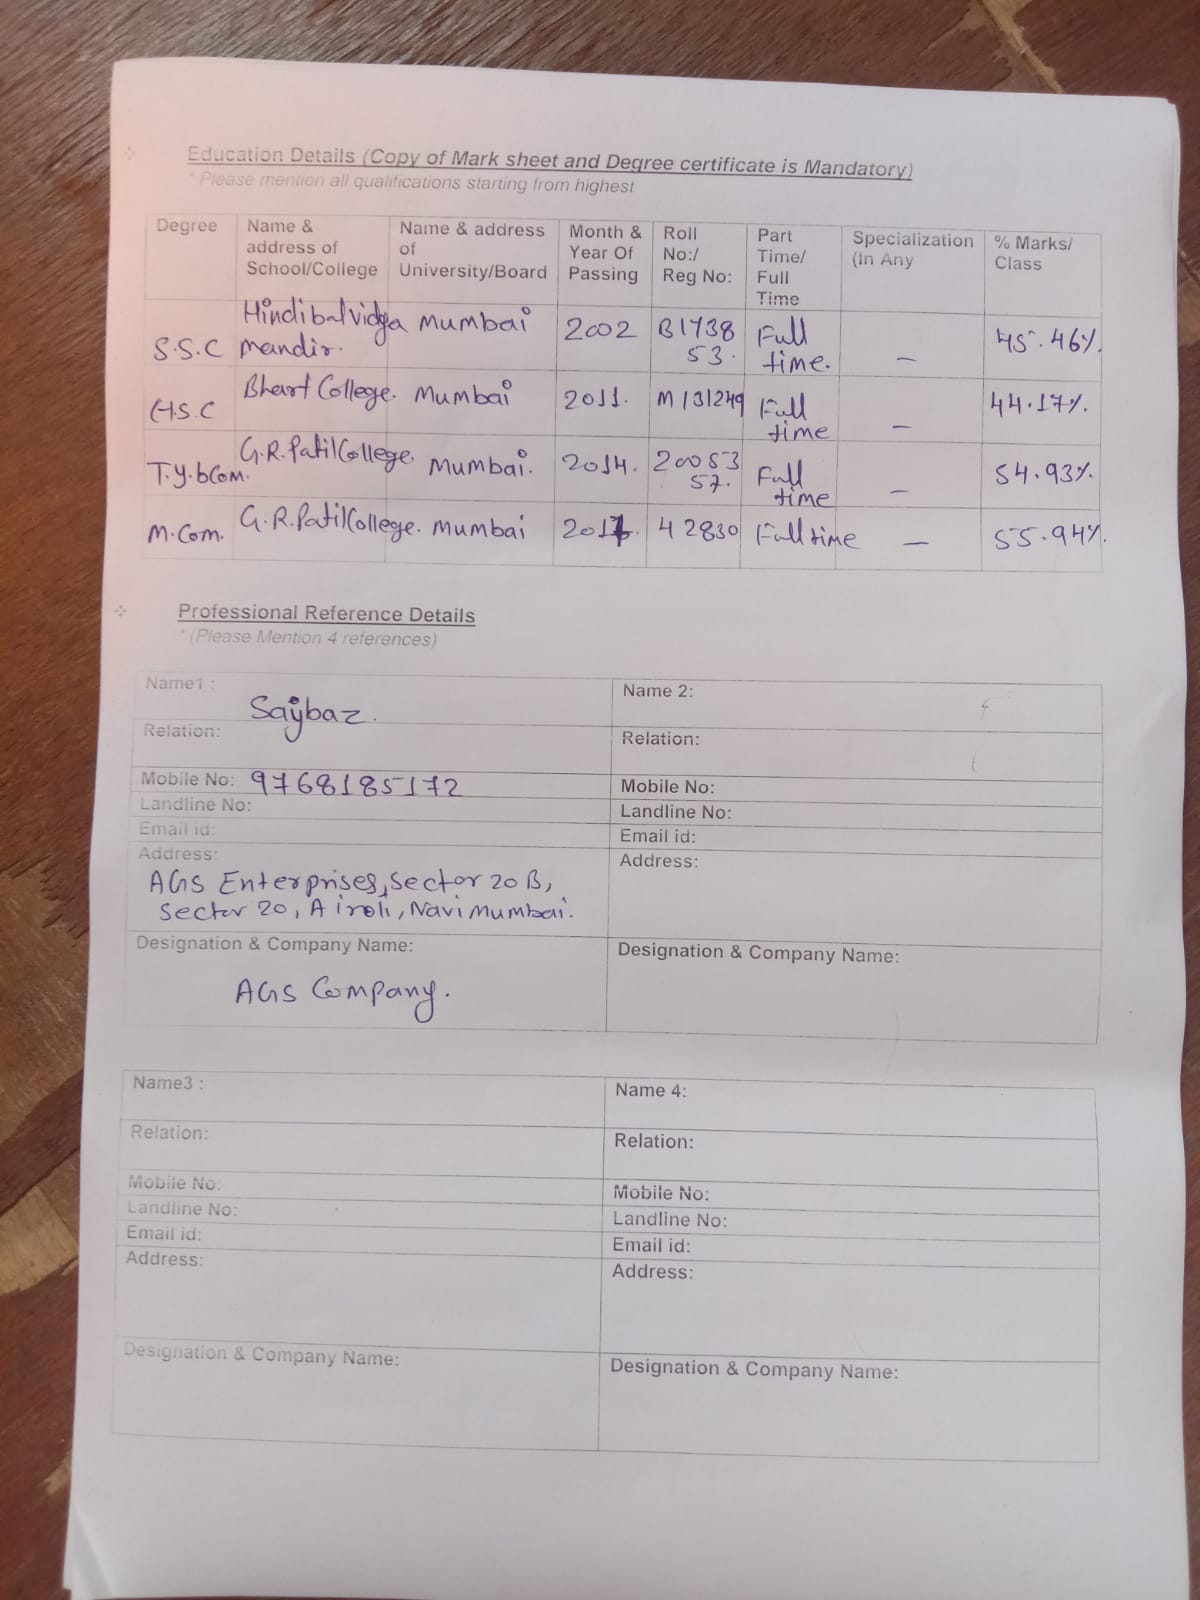 Education Details (Copy of Mark sheet and Degree certificate is Mandatory)
* Please mention all qualifications starting from highest
Degree Name & address of School/College Name & address of University/Board Month & Year Of Passing Roll No:/ Reg No: Part Time/ Full Time Specialization (In Any % Marks/ Class
S.S.C Hindibalvidya mandir. Mumbai 2002 B1738 53. Full time. — 45.46%.
H.S.C Bhart College. Mumbai 2011. M131249 Full time — 44.17%.
T.Y.bCom. G.R.Patil College. Mumbai. 2014. 20053 57. Full time — 54.93%.
M.Com. G.R.Patil College. Mumbai 42830 Full time — 55.94%.
Professional Reference Details
* (Please Mention 4 references)
Name1 : Saybaz.
Relation:
Mobile No: 9768185172
Landline No:
Email id:
Address:
AGS Enterprises, Sector 20 B,
Sector 20, Airoli, Navi Mumbai.
Designation & Company Name:
AGS Company.
Name 2:
Relation:
Mobile No:
Landline No:
Email id:
Address:
Designation & Company Name:
Name3 :
Relation:
Mobile No:
Landline No:
Email id:
Address:
Designation & Company Name:
Name 4:
Relation:
Mobile No:
Landline No:
Email id:
Address:
Designation & Company Name: